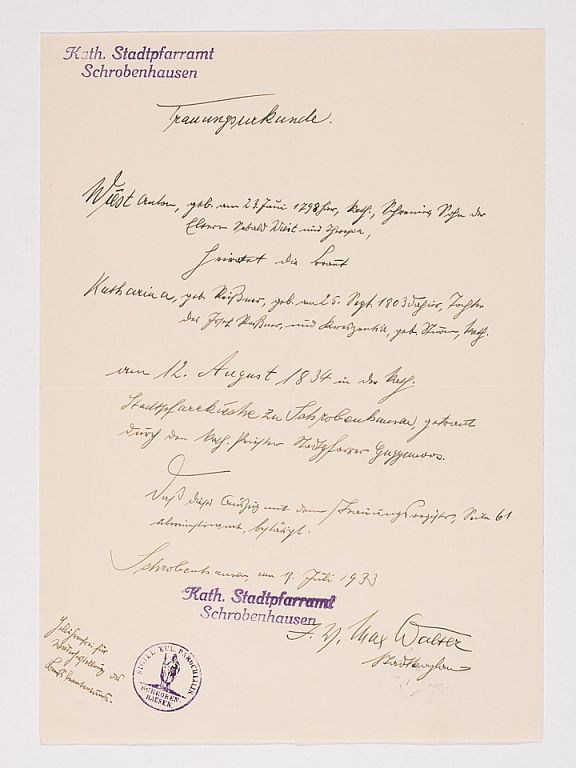 Kath. Stadtpfarramt
Schrobenhausen
Trauungsurkunde.
Wiest Anton, geb. am 23. Juni 1798 hier, kath., Sohn der
Eltern Sebald Wiest und
heiratet die Braut
Katharina, geb. geb. am 25. Sept. 1803 dahier, Tochter
des Josef und geb. kath.
am 12. August 1834 in der kath.
Stadtpfarrkirche zu Schrobenhausen, getraut
durch den kath. Priester Stadtpfarrer Guggemoos.
Daß dieser Auszug mit dem Trauungsregister, Seite 61
übereinstimmt, bestätigt.
Schrobenhausen, am Juli 1933
Kath. Stadtpfarramt
Schrobenhausen
Max Walter
Stadtkaplan
Gebührenfrei für
der
SCHROBEN-
HAUSEN